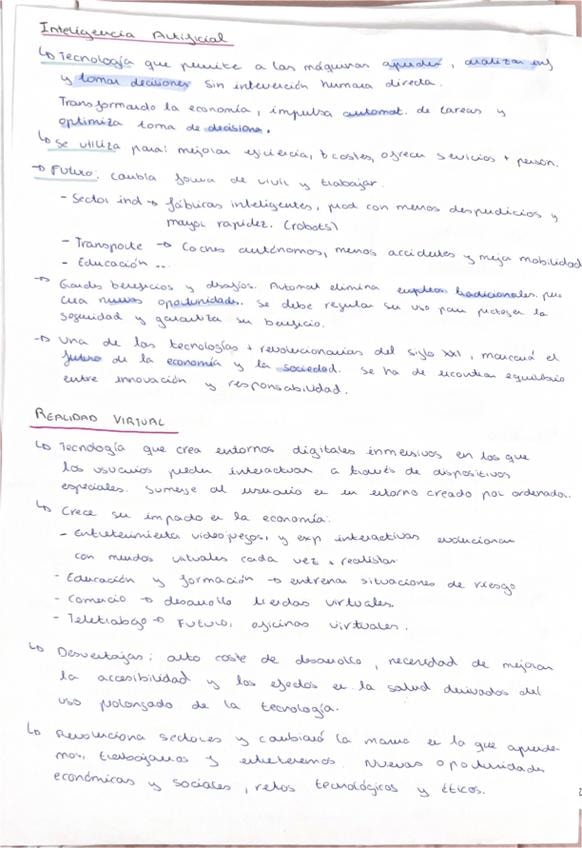 Inteligencia Artificial
↳ Tecnología que permite a las máquinas aprender, analizar inf
y tomar decisiones sin interveción humana directa.
Transformando la economía, impulsa automat. de tareas y
optimiza toma de decisions.
↳ se utiliza para: mejorar eficiencia, ↓ costes, ofrecer servicios + person.
→ Futuro: cambia forma de vivir y trabajar.
- Sector ind → fábricas inteligentes, prod con menos desperdicios y
mayor rapidez. (robots)
- Transporte → Coches autónomos, menos accidentes y mejor movilidad
- Educación ...
→ Grandes beneficios y desafíos. Automat elimina empleos tradicionales, pero
crea nuevas oportunidades. Se debe regular su uso para proteger la
seguridad y garantizar su beneficio.
→ Una de las tecnologías + revolucionarias del siglo XXI, marcará el
futuro de la economía y la sociedad. Se ha de encontrar equilibrio
entre innovación y responsabilidad.
REALIDAD VIRTUAL
↳ Tecnología que crea entornos digitales inmersivos en los que
los usuarios pueden interactuar a través de dispositivos
especiales. Sumerge al usuario en un entorno creado por ordenador.
↳ Crece su impacto en la economía:
- Entretenimiento videojuegos, y exp interactivas evolucionan
con mundos virtuales cada vez + realistas
- Educación y formación → entrenar situaciones de riesgo
- Comercio → desarrollo tiendas virtuales.
- Teletrabajo → Futuro, oficinas virtuales.
↳ Desventajas: alto coste de desarrollo, necesidad de mejorar
la accesibilidad y los efectos en la salud derivados del
uso prolongado de la tecnología.
↳ Revoluciona sectores y cambiará la manera en la que aprende-
mos, trabajamos y entretenemos. Nuevas oportunidades
económicas y sociales, retos tecnológicos y éticos.